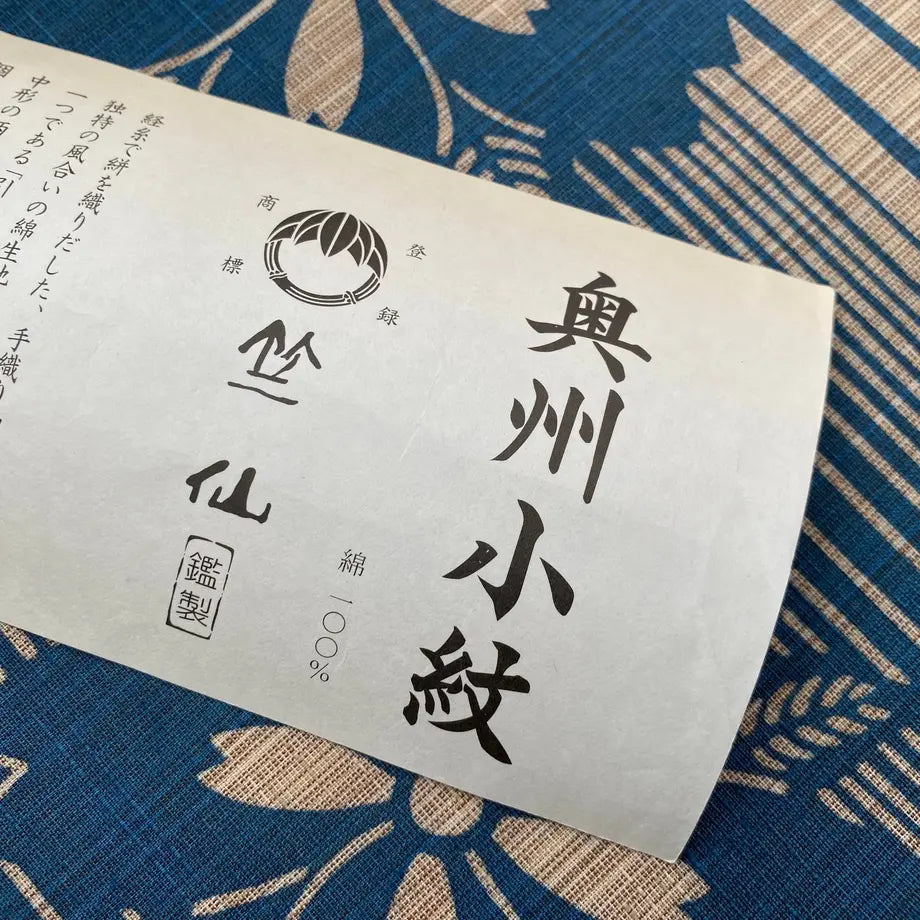 奥州小紋
綿 一〇〇%
登録
商標
竺仙
鑑製
経糸で絣を織りだした、手織り
独特の風合いの綿生地
一つである「引
中形の両